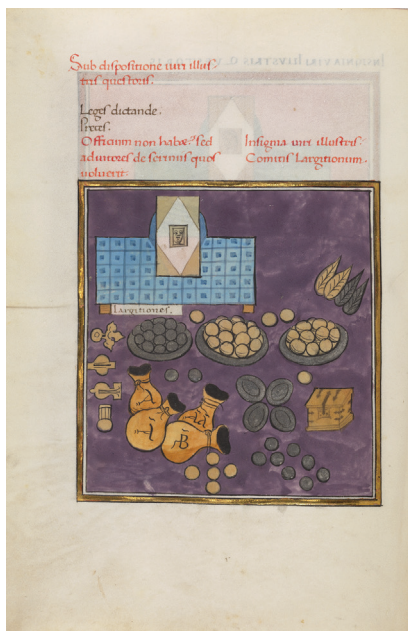 Sub dispositione uiri illus-
tris questoris.
Leges dictande.
Preces.
Officium non habe? sed
adiutores de scriniis quos
uoluerit.
Insignia uiri illustris.
Comitis Largitionum.
Largitiones.